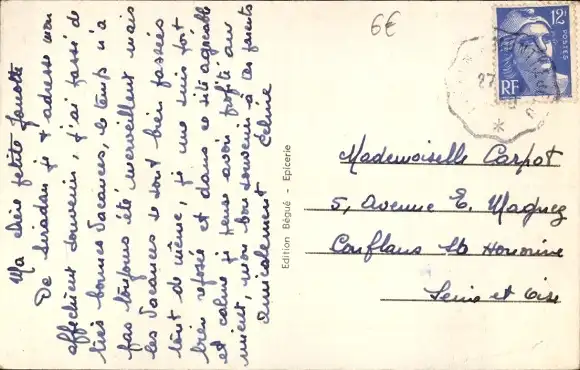 Ma chère petite Janotte
De Siradan je t'adresse mon
affectueux souvenir, j'ai passé de
très bonnes vacances, le temps n'a
pas toujours été merveilleux mais
les vacances se sont bien passées
tout de même, je me suis fort
bien reposée et dans ce site agréable
et calme je pense avoir profité au
mieux, mon bon souvenir à tes parents
Amicalement Céline
Edition Bégué - Epicerie
6€
12F
POSTES
RF
27
Mademoiselle Carpot
5, Avenue E. Magnez
Conflans Ste Honorine
Seine et Oise